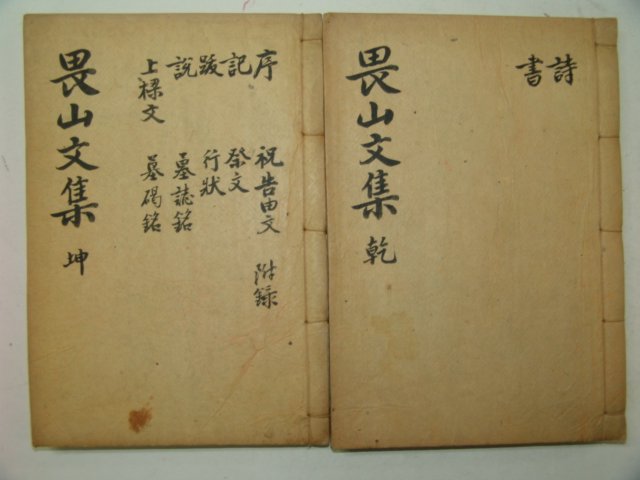 詩
書
畏山文集 乾
序 祝告由文 附録
記 祭文
跋 行狀
說 墓誌銘
上樑文 墓碣銘
畏山文集 坤